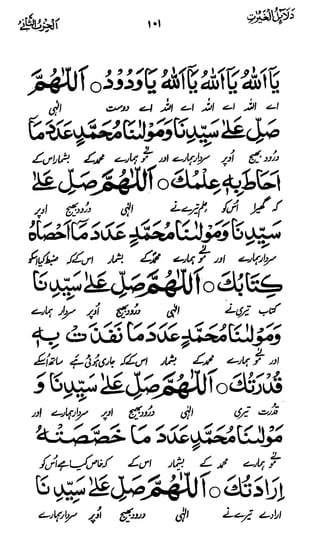 دَلَائِلُ الْخَيْرَاتِ ۱۰۱ اَلْحِزْبُ الثَّانِيْ
يَآ اَللهُ يَآ اَللهُ يَآ اَللهُ يَاوَدُوْدُ ○ اَللّٰهُمَّ
اے اللہ اے اللہ اے اللہ اے دوست الٰہی
صَلِّ عَلٰى سَيِّدِنَا وَمَوْلٰنَا مُحَمَّدٍ عَدَدَ مَآ
درود بھیج اوپر سردار ہمارے اور ہمارے محمد کے بشمار اس کے
اَحَاطَ بِهٖ عِلْمُكَ ○ اَللّٰهُمَّ صَلِّ عَلٰى
کہ گھیرا اُس کو علم تیرے نے الٰہی درود بھیج اوپر
سَيِّدِنَا وَمَوْلٰنَا مُحَمَّدٍ عَدَدَ مَآ اَحْصَاهُ
سردار ہمارے اور ہمارے محمد کے بشمار اس کے کہ ضبط کیا اسکو
كِتَابُكَ ○ اَللّٰهُمَّ صَلِّ عَلٰى سَيِّدِنَا
کتاب تیری نے الٰہی درود بھیج اوپر سردار ہمارے
وَمَوْلٰنَا مُحَمَّدٍ عَدَدَ مَا نَفَذَتْ بِهٖ
اور ہمارے محمد کے بشمار اس کے کہ جاری ہوئی ہے ساتھ اسکے
قُدْرَتُكَ ○ اَللّٰهُمَّ صَلِّ عَلٰى سَيِّدِنَا وَ
قدرت تیری الٰہی درود بھیج اوپر سردار ہمارے اور
مَوْلٰنَا مُحَمَّدٍ عَدَدَ مَا خَصَّصَتْهُ
ہمارے محمد کے بشمار اس کے کہ خاص کیا ہے اُس کو
اِرَادَتُكَ ○ اَللّٰهُمَّ صَلِّ عَلٰى سَيِّدِنَا
ارادے تیرے نے الٰہی درود بھیج اوپر سردار ہمارے